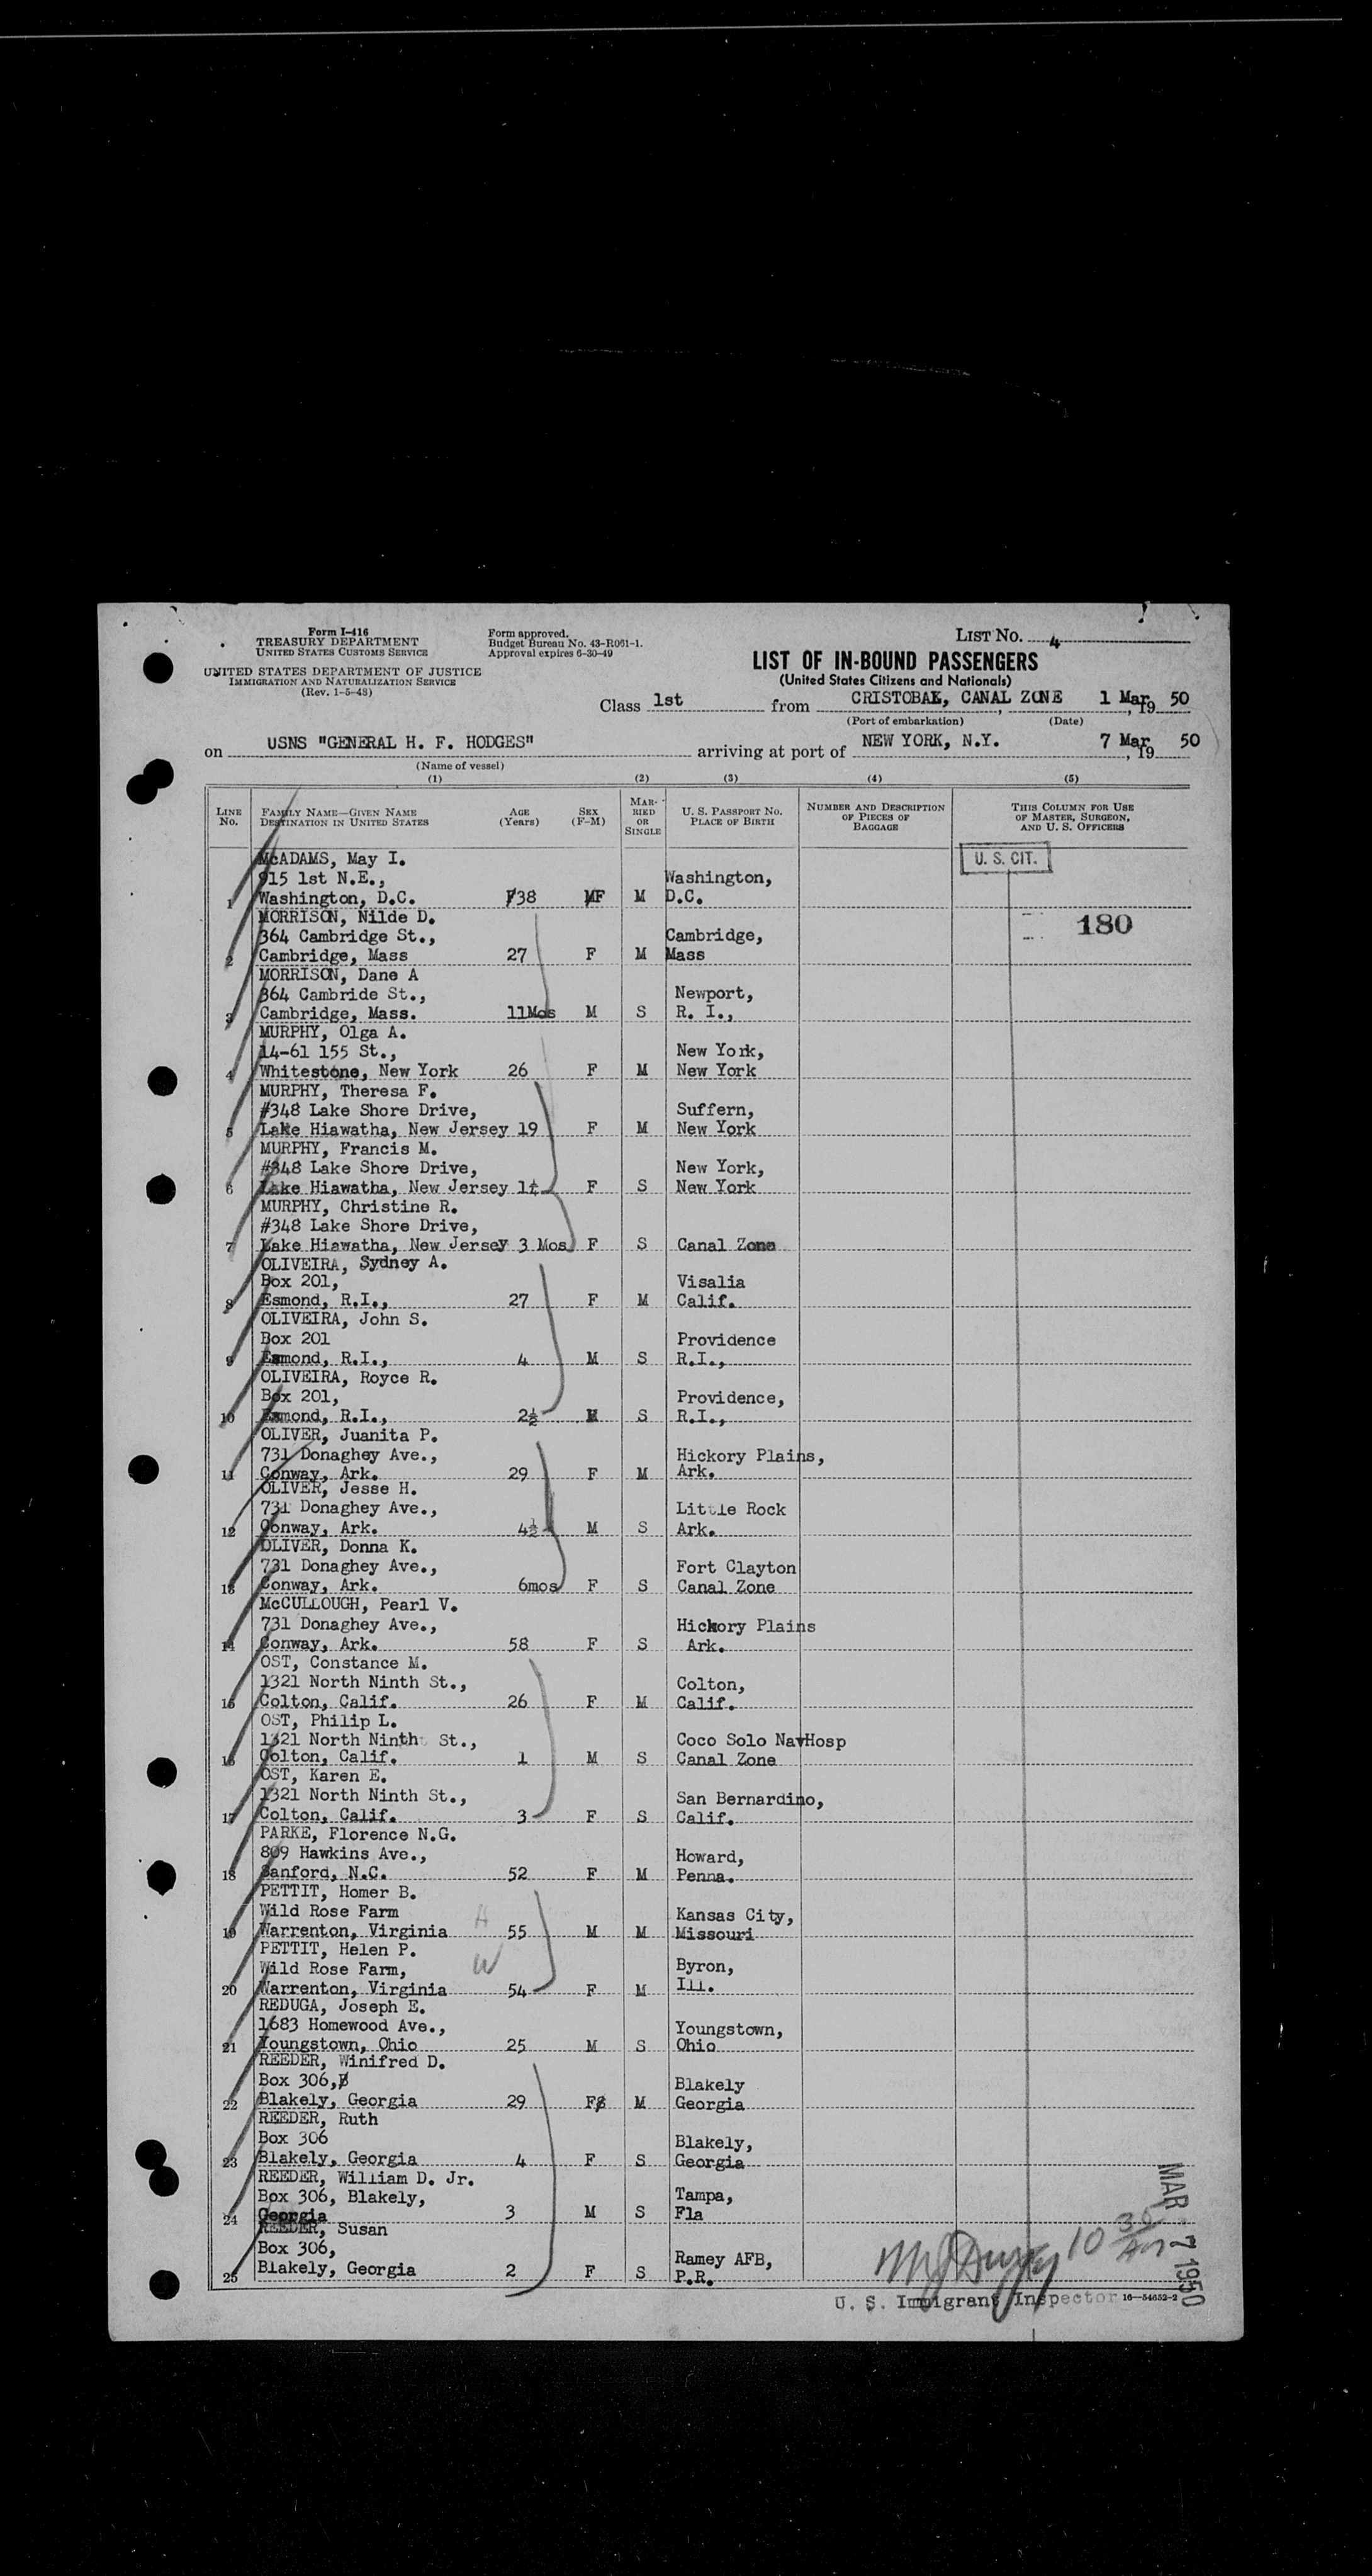 Form I-416
TREASURY DEPARTMENT
UNITED STATES CUSTOMS SERVICE
UNITED STATES DEPARTMENT OF JUSTICE
IMMIGRATION AND NATURALIZATION SERVICE
(Rev. 1-5-48)
Form approved.
Budget Bureau No. 43-R061-1.
Approval expires 6-30-49
LIST No. 4
LIST OF IN-BOUND PASSENGERS
(United States Citizens and Nationals)
Class 1st from CRISTOBAL, CANAL ZONE, 1 Mar, 19 50
(Port of embarkation) (Date)
on USNS "GENERAL H. F. HODGES" arriving at port of NEW YORK, N.Y. 7 Mar, 19 50
(Name of vessel)
(1) (2) (3) (4) (5)
LINE No. FAMILY NAME—GIVEN NAME DESTINATION IN UNITED STATES AGE (Years) SEX (F-M) MARRIED OR SINGLE U. S. PASSPORT No. PLACE OF BIRTH NUMBER AND DESCRIPTION OF PIECES OF BAGGAGE THIS COLUMN FOR USE OF MASTER, SURGEON, AND U. S. OFFICERS
U. S. CIT.
180
McADAMS, May I.
915 1st N.E., Washington,
1 Washington, D.C. 38 F M D.C.
MORRISON, Nilde D.
364 Cambridge St., Cambridge,
2 Cambridge, Mass 27 F M Mass
MORRISON, Dane A
364 Cambride St., Newport,
3 Cambridge, Mass. 11Mos M S R. I.,
MURPHY, Olga A.
14-61 155 St., New York,
4 Whitestone, New York 26 F M New York
MURPHY, Theresa F.
#348 Lake Shore Drive, Suffern,
5 Lake Hiawatha, New Jersey 19 F M New York
MURPHY, Francis M.
#348 Lake Shore Drive, New York,
6 Lake Hiawatha, New Jersey F S New York
MURPHY, Christine R.
#348 Lake Shore Drive,
7 Lake Hiawatha, New Jersey 3 Mos F S Canal Zone
OLIVEIRA, Sydney A.
Box 201, Visalia
8 Esmond, R.I., 27 F M Calif.
OLIVEIRA, John S.
Box 201 Providence
9 Esmond, R.I., 4 M S R.I.,
OLIVEIRA, Royce R.
Box 201, Providence,
10 Esmond, R.I., 2½ M S R.I.,
OLIVER, Juanita P.
731 Donaghey Ave., Hickory Plains,
11 Conway, Ark. 29 F M Ark.
OLIVER, Jesse H.
731 Donaghey Ave., Little Rock
12 Conway, Ark. 4½ M S Ark.
OLIVER, Donna K.
731 Donaghey Ave., Fort Clayton
13 Conway, Ark. 6mos F S Canal Zone
McCULLOUGH, Pearl V.
731 Donaghey Ave., Hickory Plains
14 Conway, Ark. 58 F S Ark.
OST, Constance M.
1321 North Ninth St., Colton,
15 Colton, Calif. 26 F M Calif.
OST, Philip L.
1321 North Ninth St., Coco Solo NavHosp
16 Colton, Calif. 1 M S Canal Zone
OST, Karen E.
1321 North Ninth St., San Bernardino,
17 Colton, Calif. 3 F S Calif.
PARKE, Florence N.G.
809 Hawkins Ave., Howard,
18 Sanford, N.C. 52 F M Penna.
PETTIT, Homer B.
Wild Rose Farm H Kansas City,
19 Warrenton, Virginia 55 M M Missouri
PETTIT, Helen P.
Wild Rose Farm, W Byron,
20 Warrenton, Virginia 54 F M Ill.
REDUGA, Joseph E.
1683 Homewood Ave., Youngstown,
21 Youngstown, Ohio 25 M S Ohio
REEDER, Winifred D.
Box 306, Blakely
22 Blakely, Georgia 29 F M Georgia
REEDER, Ruth
Box 306 Blakely,
23 Blakely, Georgia 4 F S Georgia
REEDER, William D. Jr.
Box 306, Blakely, Tampa,
24 Georgia 3 M S Fla
REEDER, Susan
Box 306, Ramey AFB,
25 Blakely, Georgia 2 F S P.R.
10 30 AM
MAR 7 1950
U. S. Immigrant Inspector 16—54652-2